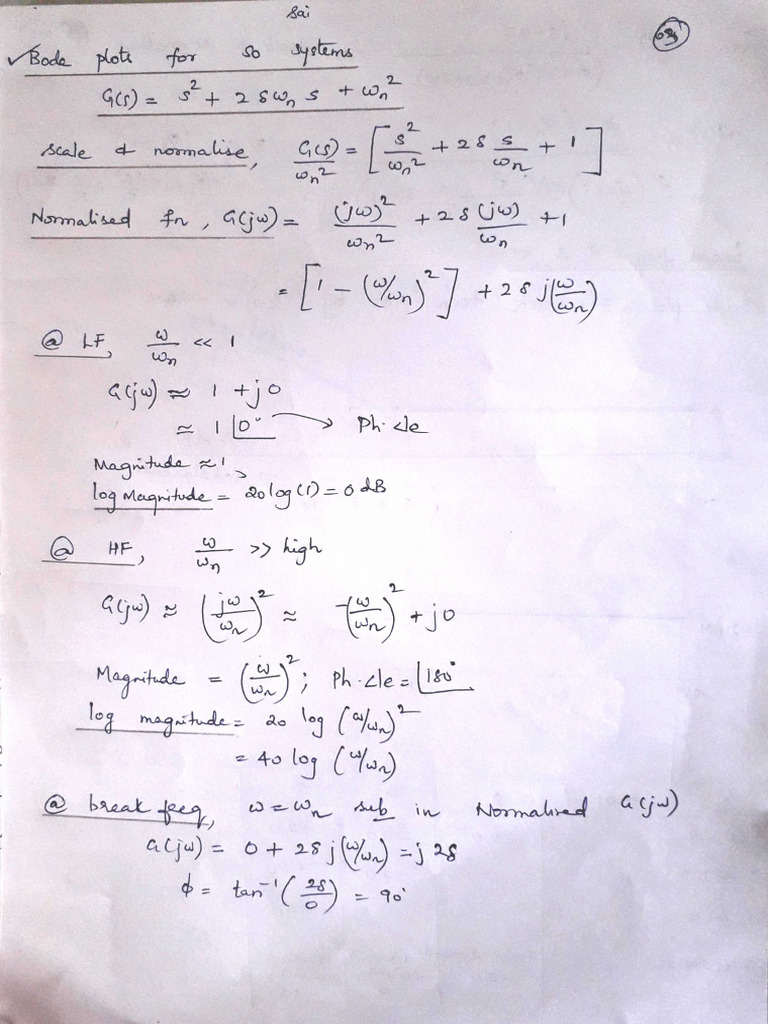 Sai
✓Bode plots for so systems
G(s) = s² + 2δωₙ s + ωₙ²
scale & normalise, G(s)/ωₙ² = [s²/ωₙ² + 2δ s/ωₙ + 1]
Normalised fn, G(jω) = (jω)²/ωₙ² + 2δ (jω)/ωₙ + 1
= [1 − (ω/ωₙ)²] + 2δ j(ω/ωₙ)
@ LF, ω/ωₙ << 1
G(jω) ≈ 1 + j0
≈ 1 ∠0° → Ph. ∠le
Magnitude ≈ 1,
log Magnitude = 20 log(1) = 0 dB
@ HF, ω/ωₙ >> high
G(jω) ≈ (jω/ωₙ)² ≈ −(ω/ωₙ)² + j0
Magnitude = (ω/ωₙ)² ; Ph. ∠le = ∠180°
log magnitude = 20 log (ω/ωₙ)²
= 40 log (ω/ωₙ)
@ break feeq, ω = ωₙ sub in Normalised G(jω)
G(jω) = 0 + 2δ j(ω/ωₙ) = j 2δ
ϕ = tan⁻¹ (2δ/0) = 90°